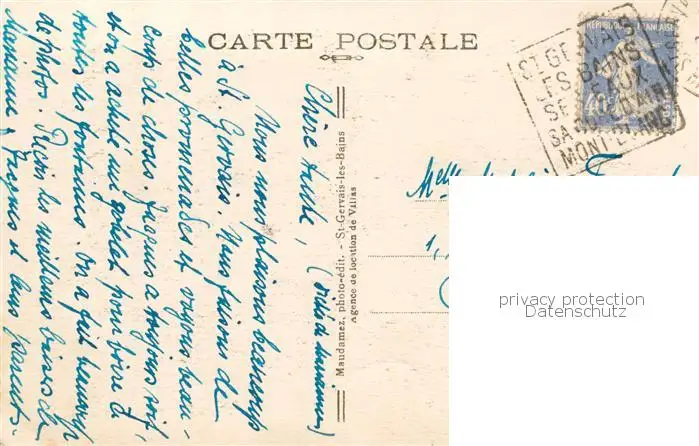 CARTE POSTALE
RÉPUBLIQUE FRANÇAISE
40c
ST GERVAIS
LES BAINS
SES EAUX
MONT BLANC
Melle
1,
privacy protection
Datenschutz
Maudamez, photo-édit. - St-Gervais-les-Bains
Agence de location de Villas
Chère tante,
Nous nous plaisons beaucoup
à St. Gervais. Nous faisons de
belles promenades et voyons beau-
coup de choses. Jacques a toujours soif
et on a acheté un gobelet pour boire à
toutes les fontaines. On a fait beaucoup
de photos. Reçois les meilleurs baisers de
Marianne, Jacques et leurs parents.